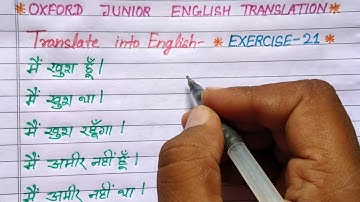 *OXFORD JUNIOR ENGLISH TRANSLATION*
Translate into English- * EXERCISE-21 *
मैं खुश हूँ।
मैं खुश था।
मैं खुश रहूँगा।
मैं अमीर नहीं हूँ।
मैं अमीर नहीं था।